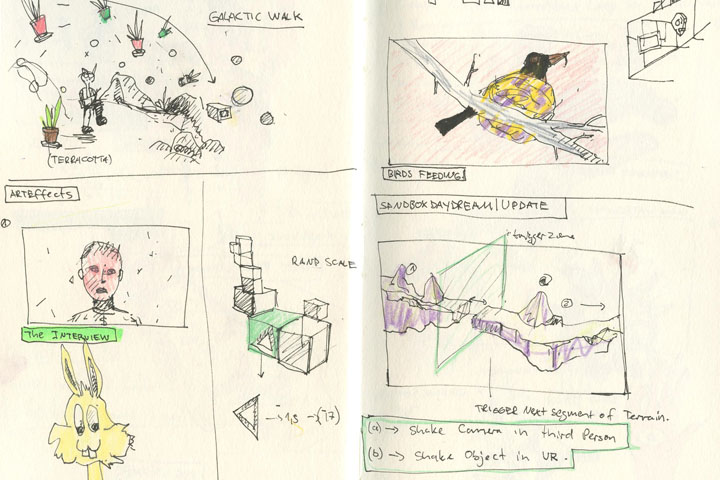 GALACTIC WALK
(TERRACOTTA)
ARTEffects
①
RAND SCALE
The INTERVIEW
BIRDS FEEDING
SANDBOXDAYDREAM | UPDATE
trigger zone
①
②
TRIGGER Next segment of Terrain.
(a) → Shake Camera in third Person
(b) → Shake Object in VR.